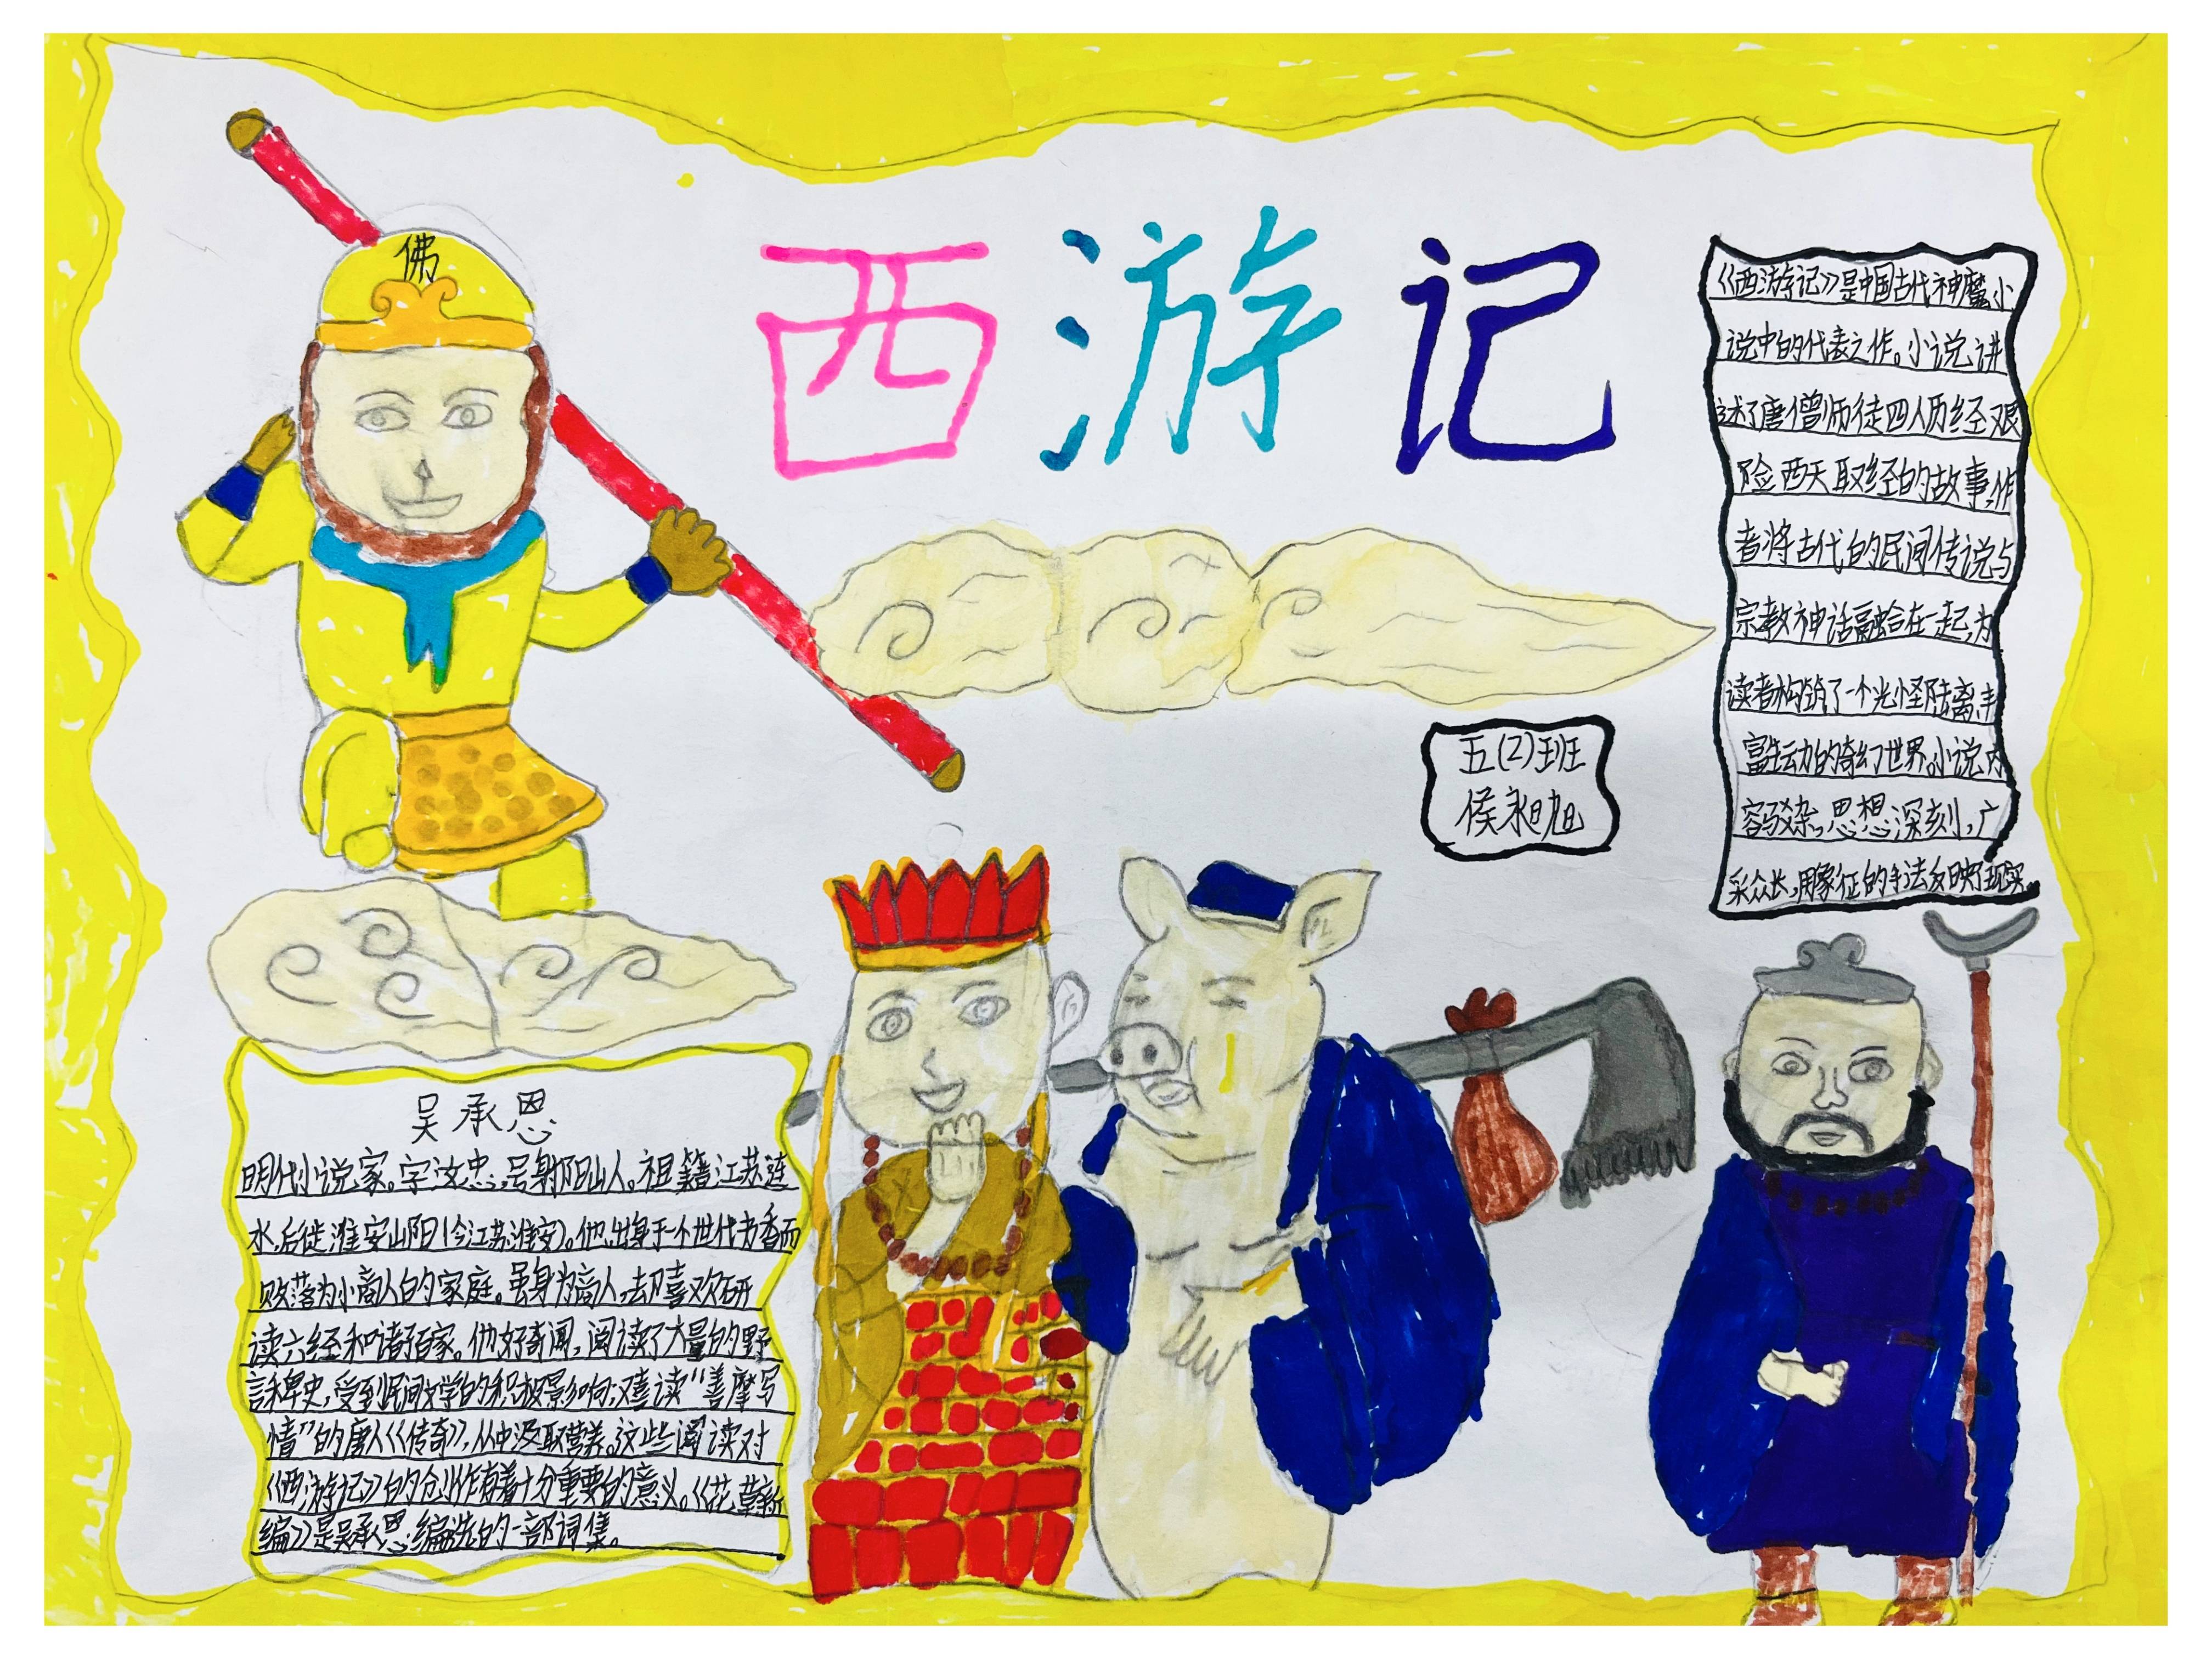 佛
西游记
《西游记》是中国古代神魔小
说中的代表之作。小说讲
述了唐僧师徒四人历经艰
险西天取经的故事,作
者将古代的民间传说与
宗教神话融合在一起,为
读者构筑了一个光怪陆离丰
富生动的奇幻世界。小说内
容驳杂,思想深刻,广
采众长,用象征的手法反映了现实。
五(2)班
侯昶旭
吴承恩
明代小说家。字汝忠,号射阳山人。祖籍江苏涟
水,后徙淮安山阳(今江苏淮安)。他出身于一个世代书香而
败落为小商人的家庭。虽身为商人,却喜欢研
读六经和诸子百家。他好奇闻,阅读了大量的野
言稗史,受到民间文学的积极影响;又喜读“善摩写
情”的唐人《传奇》,从中汲取营养。这些阅读对
《西游记》的创作有着十分重要的意义。《花草新
编》是吴承恩编选的一部词集。